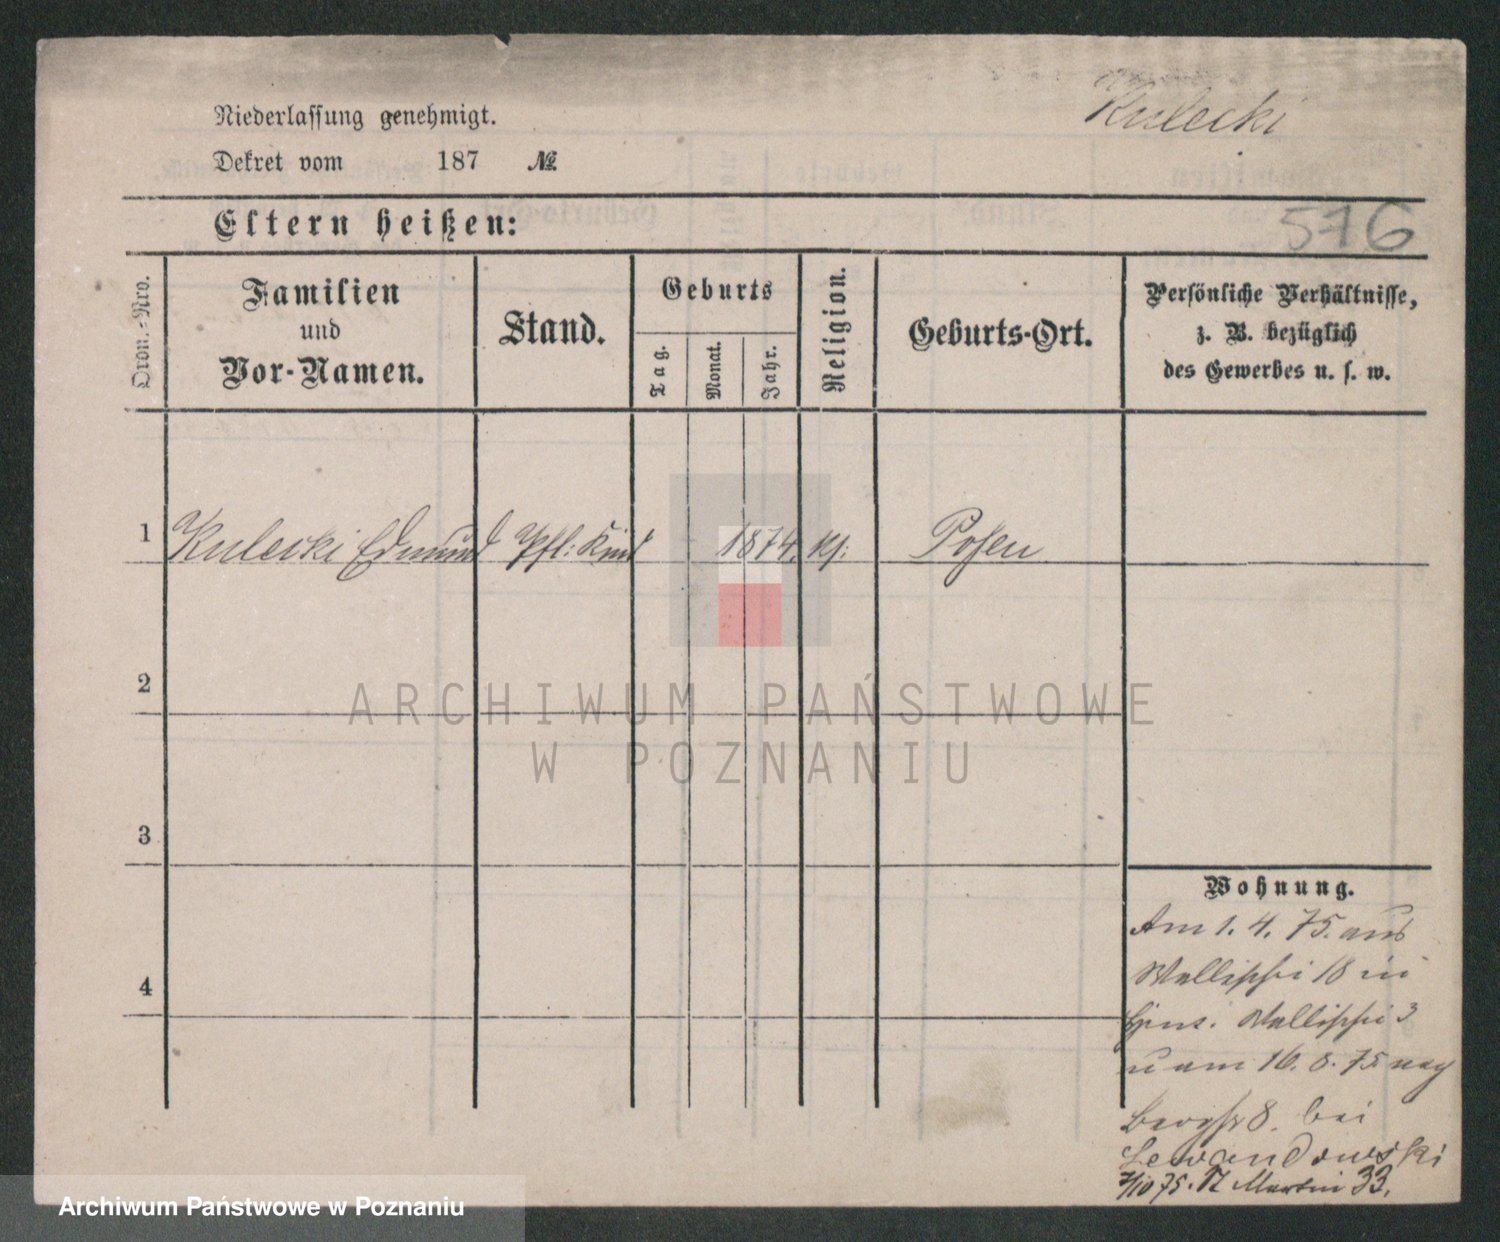 Kulecki
Niederlassung genehmigt.
Dekret vom 187 №
Eltern heißen:
576
Ordn.-Nro.
Familien
und
Vor-Namen.
Stand.
Geburts
Tag.
Monat.
Jahr.
Religion.
Geburts-Ort.
Persönliche Verhältnisse,
z. B. bezüglich
des Gewerbes u. s. w.
1 Kulecki Edmund Pfl: Kind 1874. kj: Posen
2
ARCHIWUM PAŃSTWOWE
W POZNANIU
3
Wohnung.
Am 1. 4. 75. aus
Wallischei 18 in
Wallischei 3
4
u am 16. 8. 75 nach
Bergstr 8. bei
Lewandowski
7/10 75. St Martin 33.
Archiwum Państwowe w Poznaniu